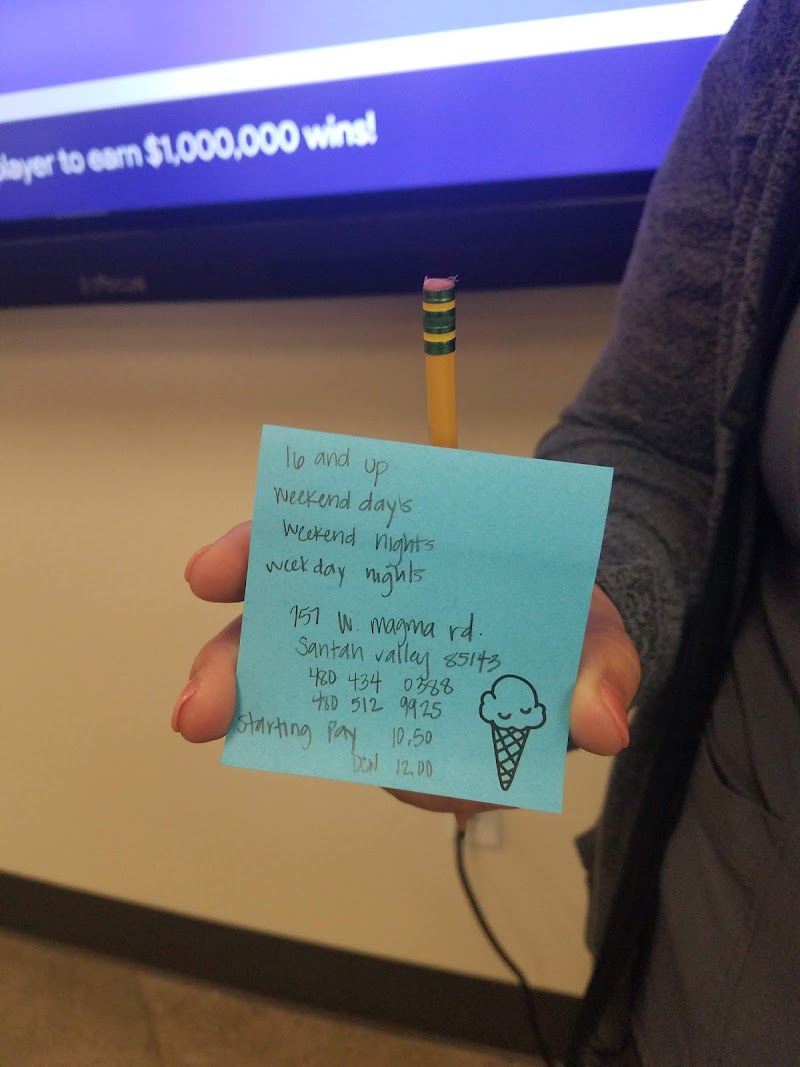 player to earn $1,000,000 wins!
infocus
16 and up
weekend days
weekend nights
weekday nights
757 W. magma rd.
Santan valley 85143
480 434 0388
480 512 9925
Starting Pay 10.50
12.00